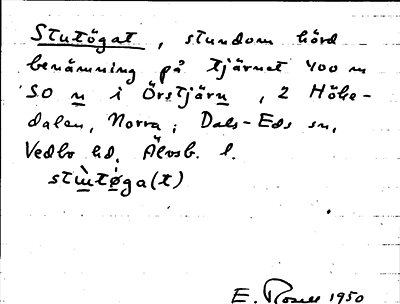 Stutögat, stundom hörd
benämning på tjärnet 400 m
SO n i Örstjärn, 2 Höke-
dalen, Norra; Dals-Eds sn,
Vedbo hd, Älvsb. l.
stutøga(t)
E. Rosell 1950